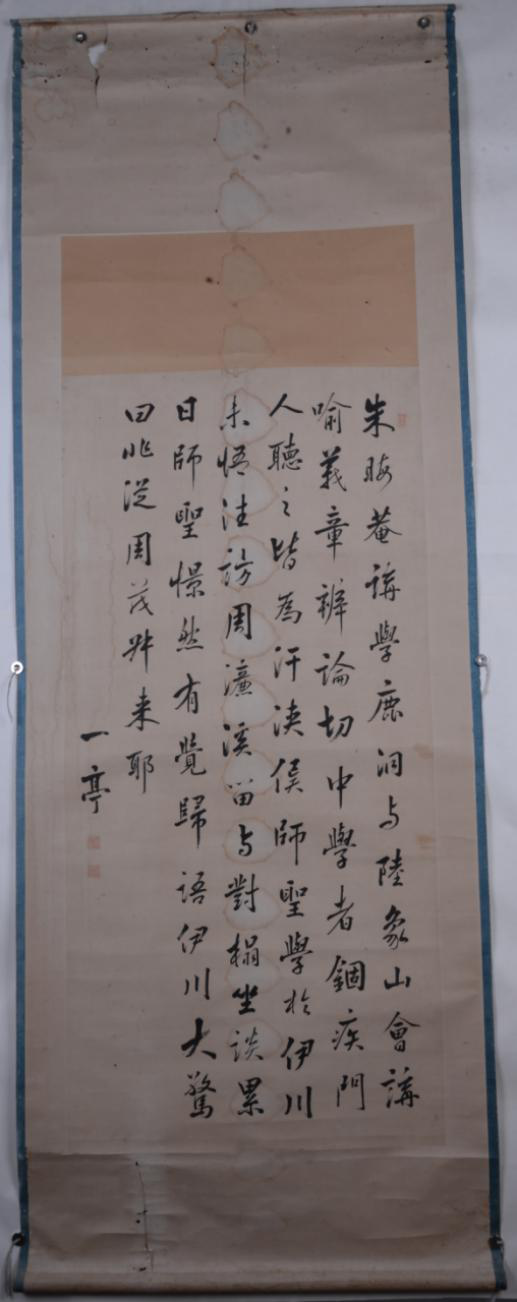 朱晦菴講學鹿洞与陸象山會講
喻義章辨論切中學者錮疾門
人聽之皆為汗浹侯師聖學於伊川
未悟往訪周濂溪留与對榻坐談累
日師聖憬然有覺歸語伊川大驚
曰非從周茂叔来耶
一亭